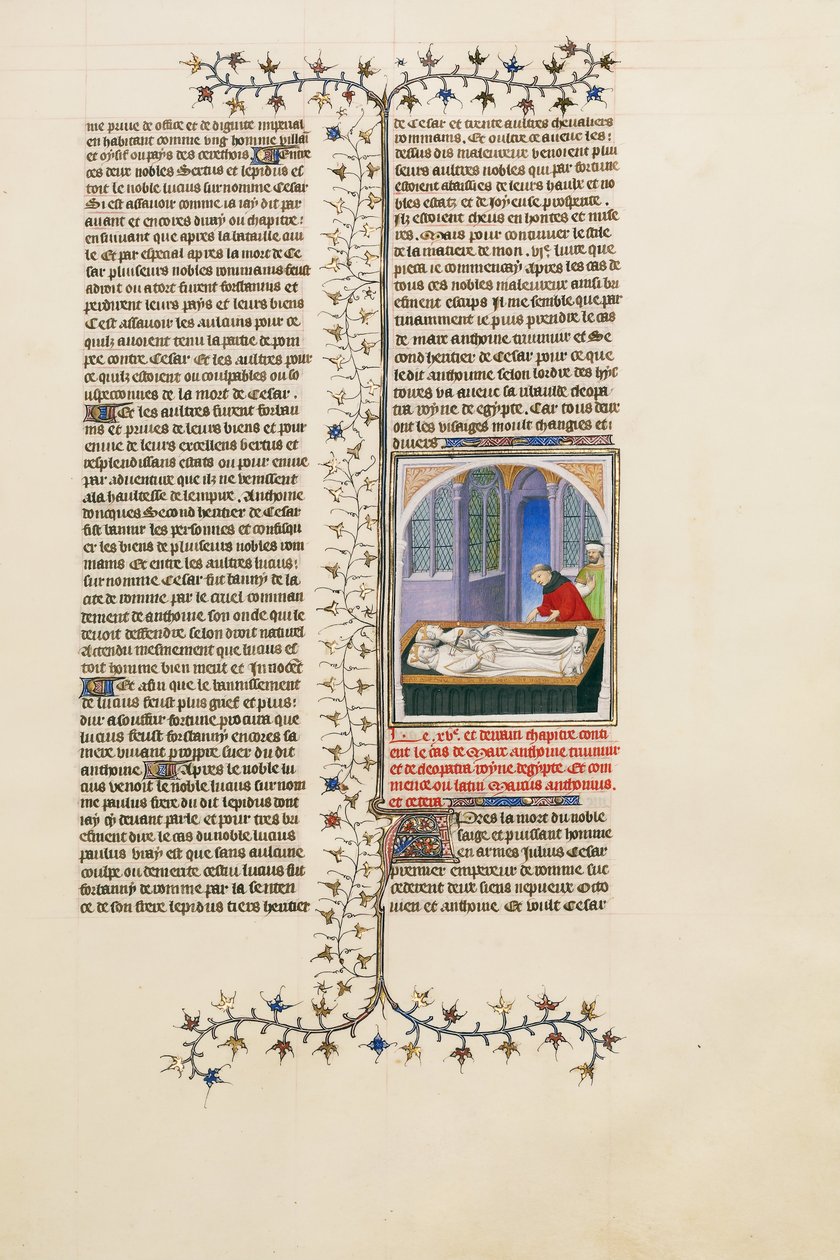 me priue de office et de dignite imperial
en habitant comme ung homme villai
et oysif ou pays des cerethois. Entre
ces deux nobles Sertus et lepidus es
toit le noble lucius surnomme Cesar
Si est assauoir comme ia iay dit par
auant et encores diray ou chapitre
ensuiuant que apres la bataille ciui
le Et par especial apres la mort de Ce
sar plusieurs nobles rommains feust
a droit ou a tort furent forbannis et
perdirent leurs pays et leurs biens
C'est assauoir les aulcuns pour ce
quilz auoient tenu la partie de pom
pee contre Cesar Et les aultres pour
ce quilz estoient ou coulpables ou so
uspeconnes de la mort de Cesar.
Et les aultres furent forban
nis et priues de leurs biens et pour
enuie de leurs excellens vertus et
resplendissans estats ou pour enuie
par aduenture que ilz ne venissent
a la haultesse de lempire. Anthoine
doncques Second heritier de Cesar
fist bannir les personnes et confisqu
er les biens de plusieurs nobles rom
mains Et entre les aultres lucius
surnomme Cesar fut banny de la
cite de romme par le cruel comman
dement de anthoine son oncle qui le
deuoit deffendre selon droit naturel
attendu mesmement que lucius es
toit homme bien meur et Innocet
Et afin que le bannissement
de lucius feust plus grief et plus
dur a souffrir fortune procura que
lucius feust forbanny encores sa
mere viuant propre suer du dit
anthoine. Apres le noble lu
cius venoit le noble lucius surnom
me paulus frere du dit lepidus dont
iay cy deuant parle et pour tres bri
efment dire le cas du noble lucius
paulus vray est que sans aulcune
coulpe ou demerite cestui lucius fut
forbanny de romme par la senten
ce de son frere lepidus tiers heritier
de Cesar et trente aultres cheualiers
rommains. Et oultre ce auec les
dessus dis maleureux venoient plui
seurs aultres nobles qui par fortune
estoient abaissies de leurs haulx et no
bles estaz et de Joyeuse prosperite.
Ilz estoient cheus en hontes et mise
res. Mais pour continuer le stile
de la matiere de mon .vie. liure que
pieca ie commencay Apres les cas de
tous ces nobles maleureux ainsi bri
efment escrips Il me semble que par
tinamment ie puis prendre le cas
de marc anthoine triumuir et Se
cond heritier de Cesar pour ce que
le dit anthoinne selon lordre des hys
toires va auec sa ribaulde cleopa
tra royne de egypte. Car tous deux
ont les visaiges moult changies et i
diuers
Le .xve. et derrain chapitre conti
ent le cas de Marc anthoine triumuir
et de cleopatra royne degypte. Et com
mence ou latin Marcus anthonius.
et cetera
APres la mort du noble
saige et puissant homme
en armes Julius Cesar
premier empereur de romme suc
cederent deux siens nepueux Octo
uien et anthoine Et voult Cesar